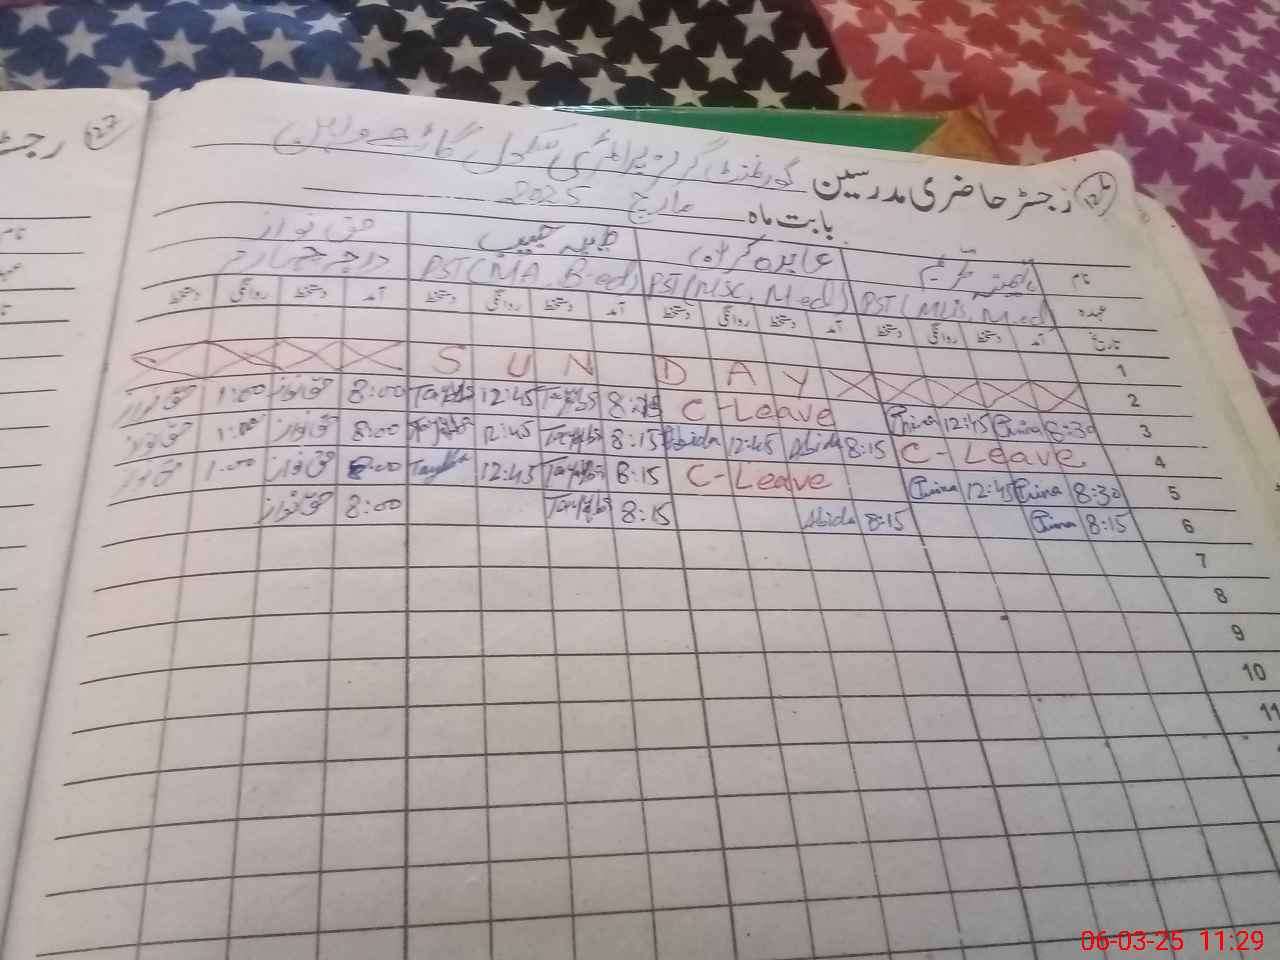 رجسٹر حاضری مدرسین گورنمنٹ گرلز پرائمری سکول
بابت ماہ مارچ 2025
نام عابدہ طیبہ حبیب حق نواز
عہدہ PST(MLIS, M.ed) PST(MSC, M.ed) PST(MA, B.ed) درجہ چہارم
تاریخ آمد دستخط روانگی دستخط آمد دستخط روانگی دستخط آمد دستخط روانگی دستخط آمد دستخط روانگی دستخط
1 SUNDAY
2 8:30 12:45 C-Leave 8:15 Tayyba 12:45 Tayyba 8:00 حق نواز 1:00 حق نواز
3 C-Leave 8:15 Abida 12:45 Abida 8:15 Tayyba 12:45 Tayyba 8:00 حق نواز 1:00 حق نواز
4 8:30 12:45 C-Leave 8:15 Tayyba 12:45 Tayyba 8:00 حق نواز 1:00 حق نواز
5 8:15 8:15 Abida 8:15 Tayyba 8:00 حق نواز
6
7
8
9
10
11
127
رجسٹر
06-03-25 11:29